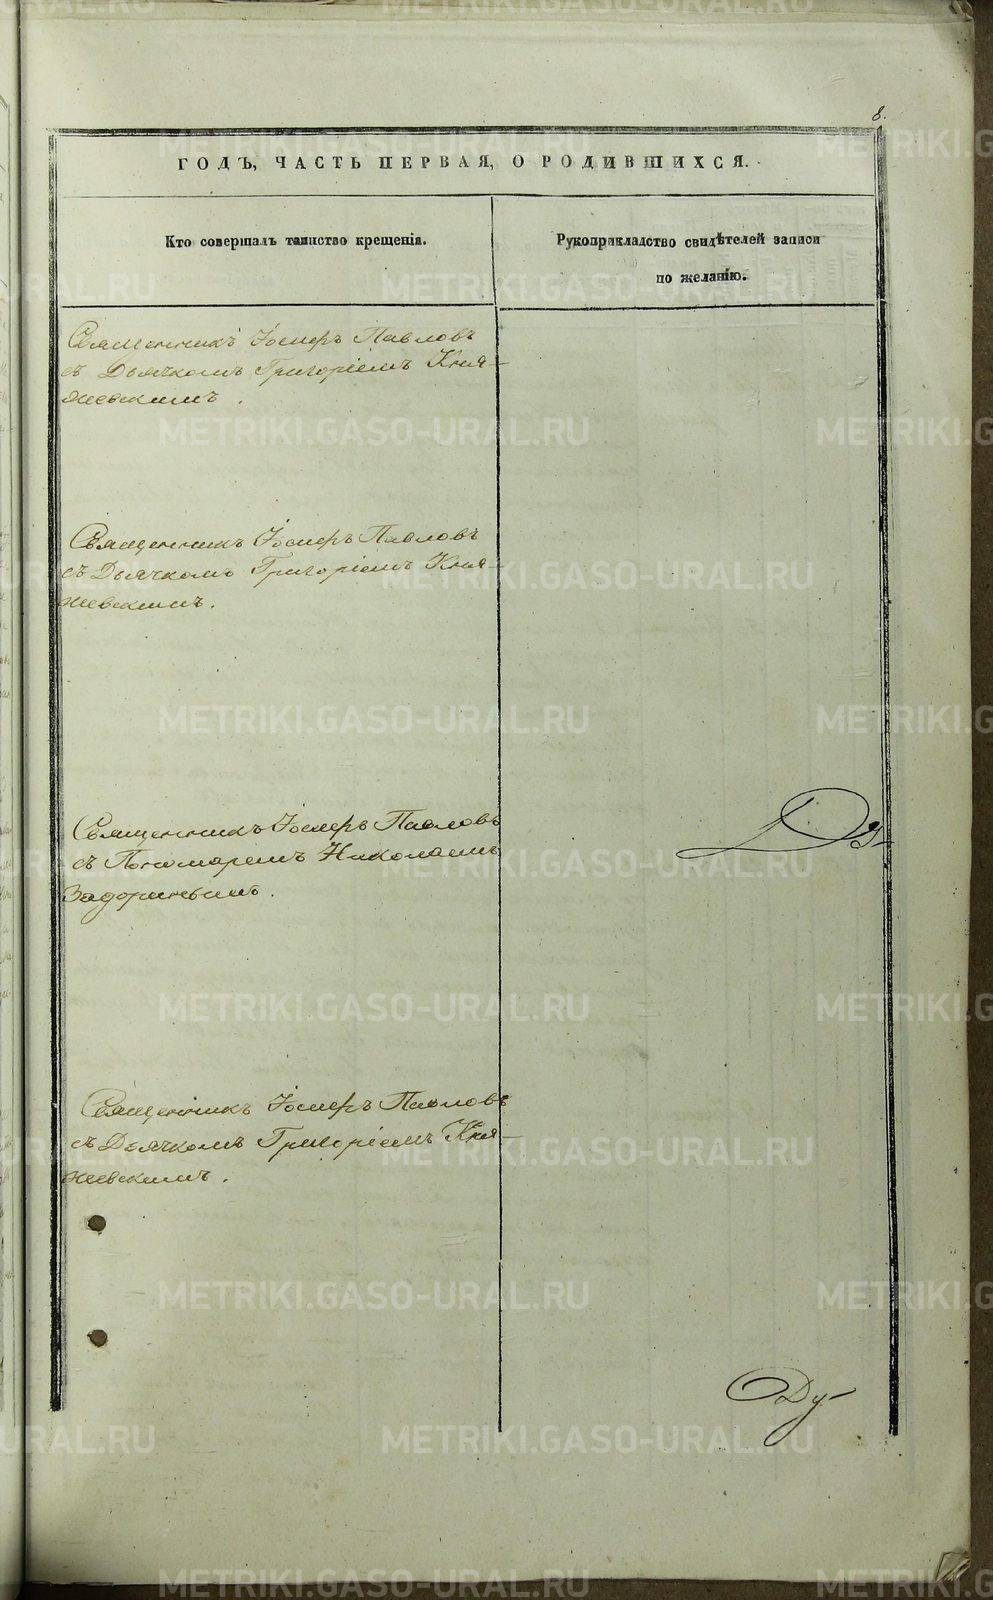 8.
ГОДЪ, ЧАСТЬ ПЕРВАЯ, О РОДИВШИХСЯ.
Кто совершалъ таинство крещенія.
Рукоприкладство свидѣтелей записи
по желанію.
Священникъ Іосифъ Павловъ
съ Дьячкомъ Григоріемъ Кня-
жевскимъ.
Священникъ Іосифъ Павловъ
съ Дьячкомъ Григоріемъ Кня-
жевскимъ.
Священникъ Іосифъ Павловъ
съ Пономаремъ Николаемъ
Задоринымъ.
Священникъ Іосифъ Павловъ
съ Дьячкомъ Григоріемъ Кня-
жевскимъ.
Ду-
METRIKI.GASO-URAL.RU